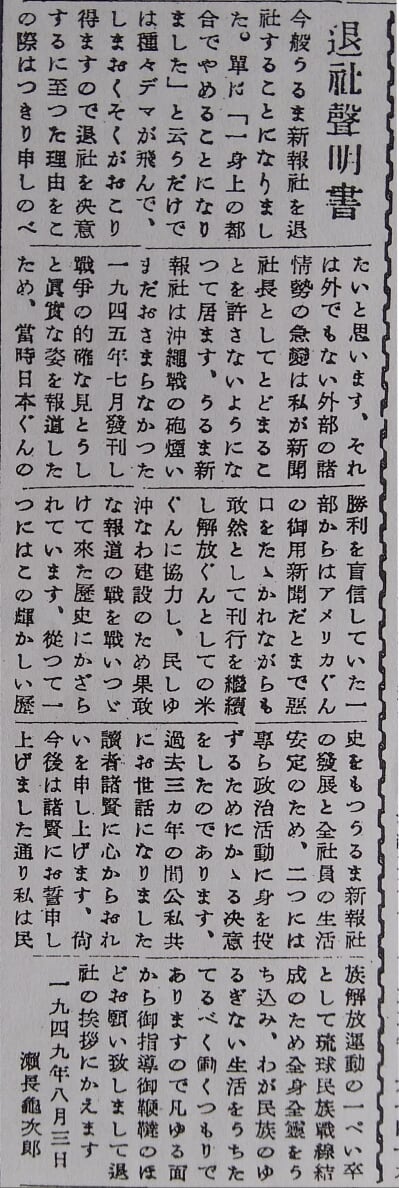 退社聲明書
今般うるま新報社を退
社することになりまし
た。單に「一身上の都
合でやめることになり
ました」と云うだけで
は種々デマが飛んで、
しまおくそくがおこり
得ますので退社を決意
するに至つた理由をこ
の際はつきり申しのべ
たいと思います、それ
は外でもない外部の諸
情勢の急変は私が新聞
社長としてとどまるこ
とを許さないようにな
つて居ます、うるま新
報社は沖縄戰の砲煙い
まだおさまらなかつた
一九四五年七月発刊し
戰爭の的確な見とうし
と眞実な姿を報道した
ため、當時日本ぐんの
勝利を盲信していた一
部からはアメリカぐん
の御用新聞だとまで惡
口をたゝかれながらも
敢然として刊行を繼續
し解放ぐんとしての米
ぐんに協力し、民しゆ
沖なわ建設のため果敢
な報道の戰を戰いつゞ
けて來た歴史にかざら
れています、從つて一
つにはこの輝かしい歴
史をもつうるま新報社
の發展と全社員の生活
安定のため、二つには
專ら政治活動に身を投
ずるためにかゝる決意
をしたのであります、
過去三カ年の間公私共
にお世話になりました
讀者諸賢に心からおれ
いを申し上げます、尙
今後は諸賢にお誓申し
上げました通り私は民
族解放運動の一ぺい卒
として琉球民族戰線結
成のため全身全靈をう
ち込み、わが民族のゆ
るぎない生活をうちた
てるべく働くつもりで
ありますので凡ゆる面
から御指導御鞭撻のほ
どお願い致しまして退
社の挨拶にかえます
一九四九年八月三日
瀨長龜次郎